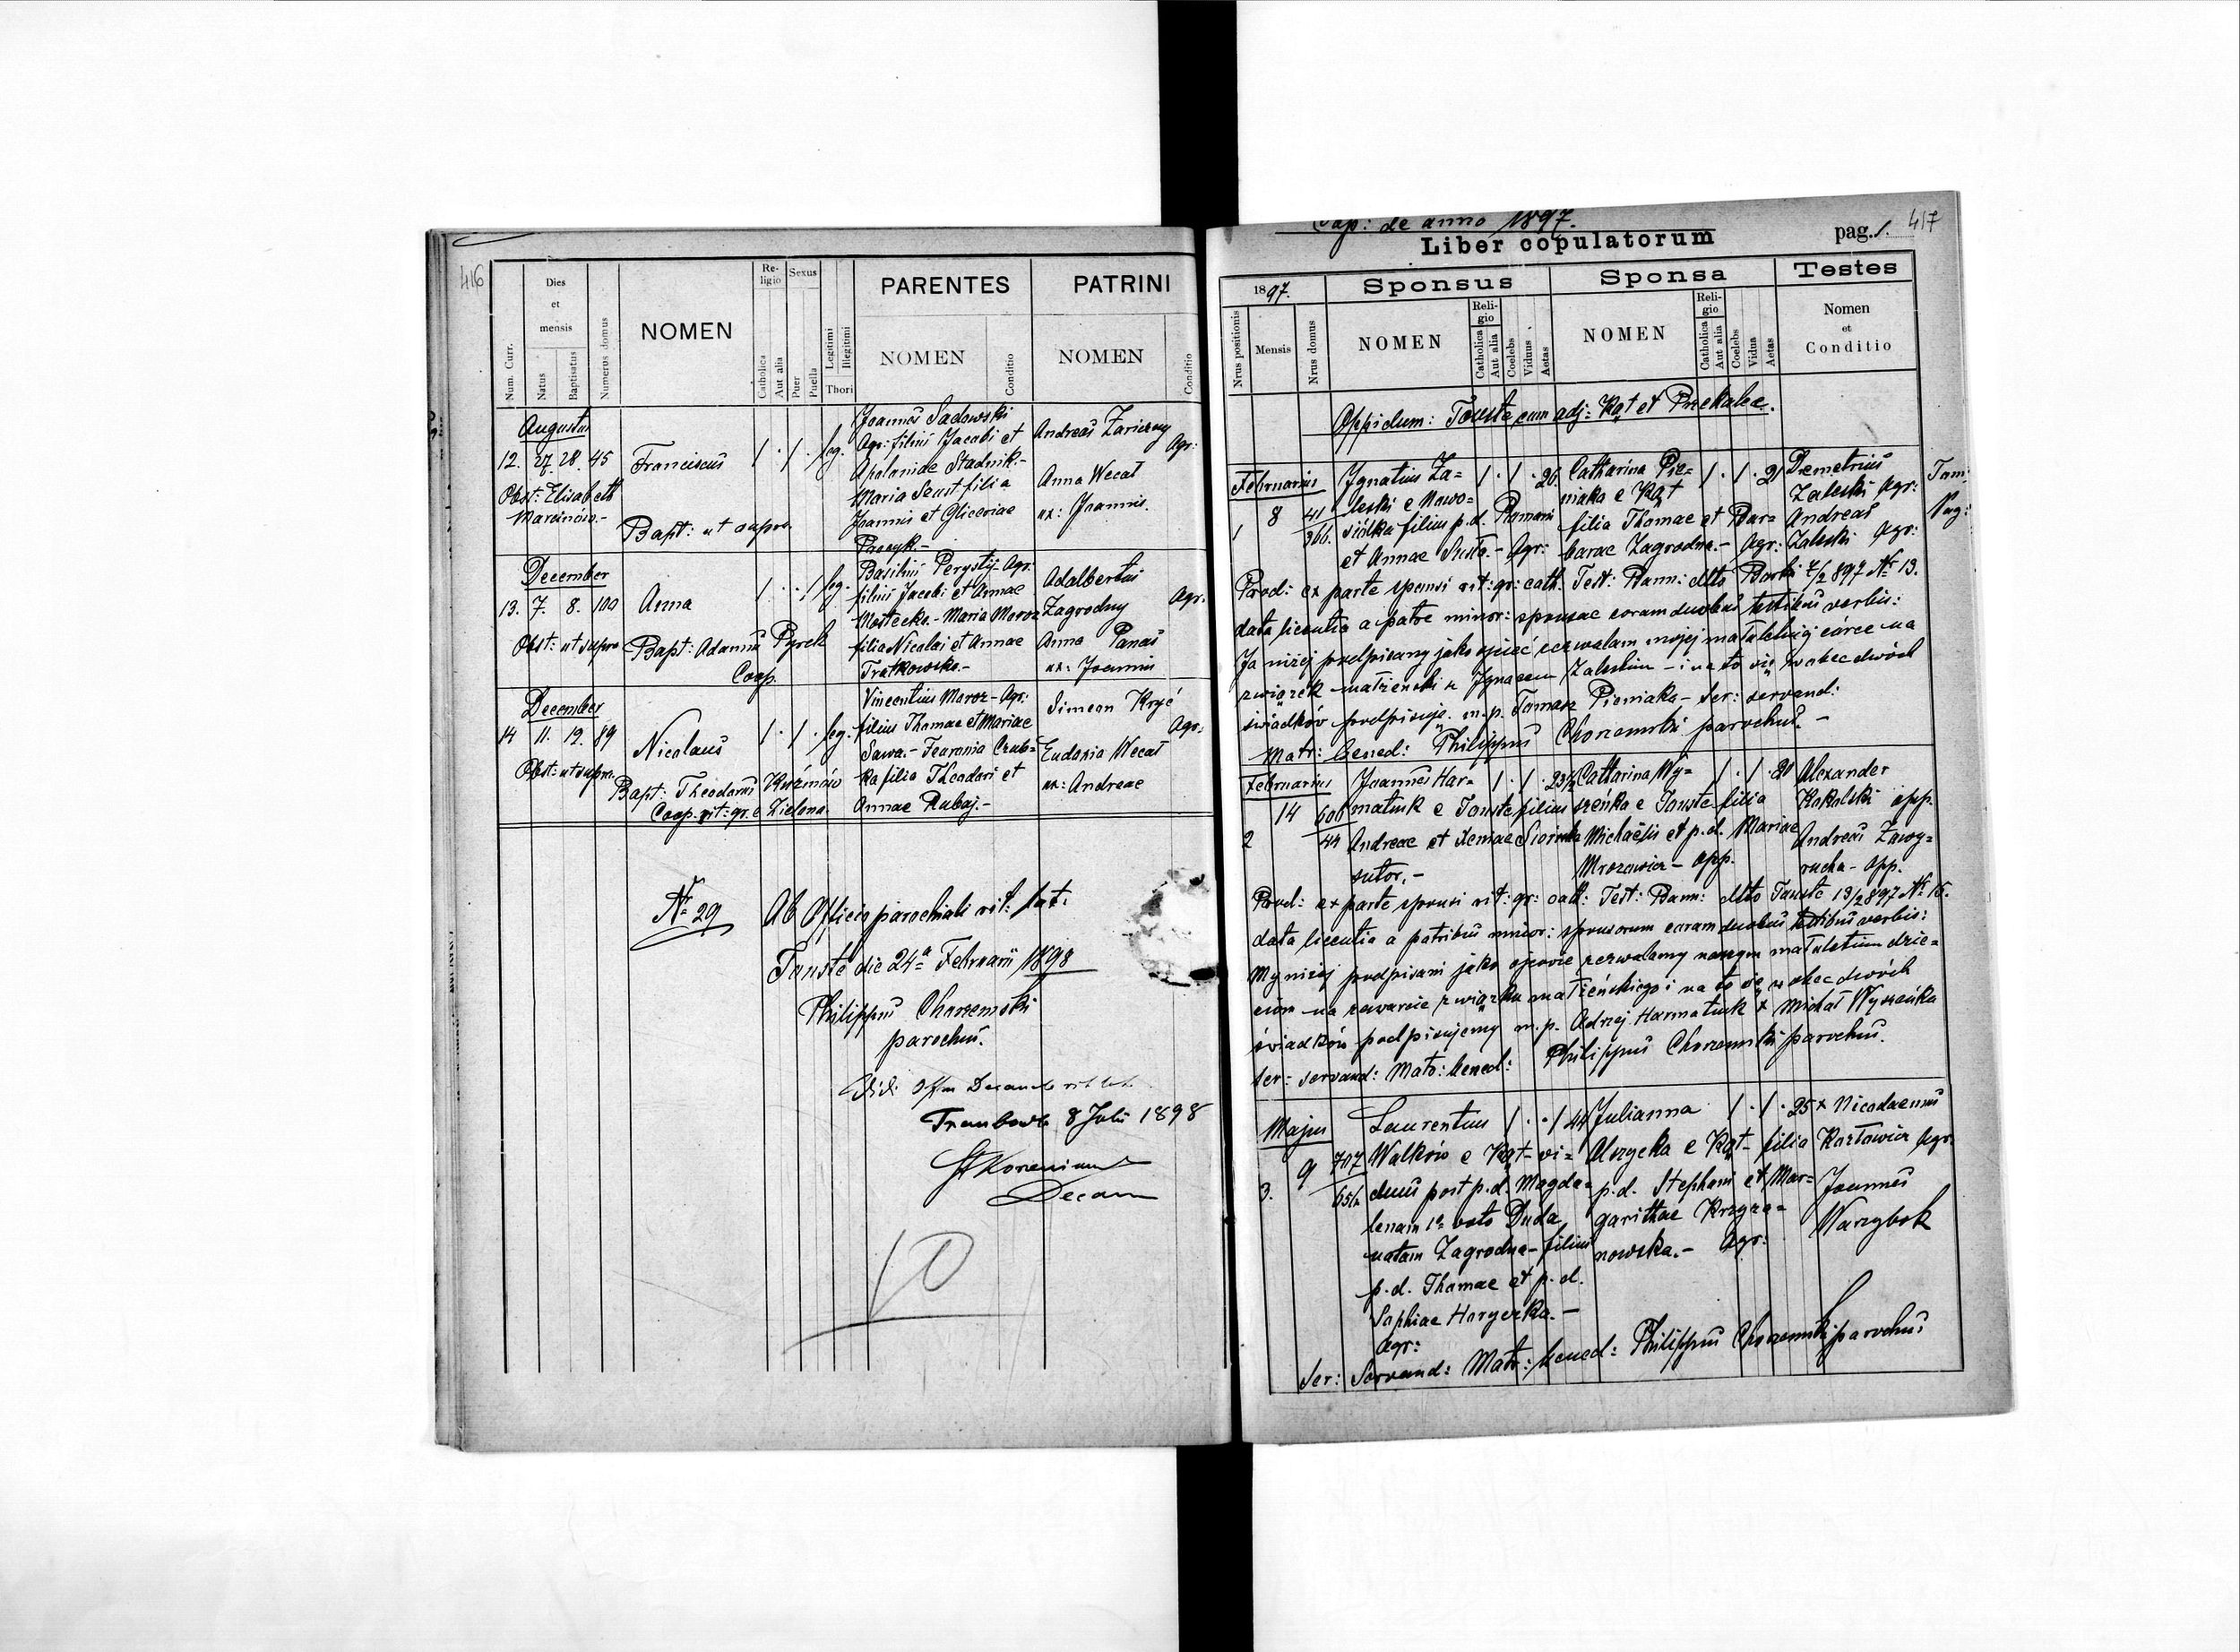 416
Num. Curr.
Dies et mensis
Natus
Baptisatus
Numerus domus
NOMEN
Religio
Catholica
Aut alia
Sexus
Puer
Puella
Legitimi
Illegitimi
Thori
PARENTES
NOMEN
Conditio
PATRINI
NOMEN
Conditio
Augustus
12. 27. 28. 45 Franciscus 1 · 1 · leg.
Obst: Elisabeth
Marcinów.-
Bapt: ut supra
Joannes Sadowski
Agr: filius Jacobi et
Apoloniae Stadnik.-
Maria Szust filia
Joannis et Gliceriae
Andreas Zariczny
Agr:
Anna Wecał
ux: Joannis.
December
13. 7. 8. 100 Anna 1 · · 1 leg.
Obst: ut supra
Bapt: Adamus Pyrek
Coop.
Basilius Perystÿ Agr:
filius Jacobi et Annae
Mostecka.- Maria Moroz
filia Nicolai et Annae
Tratkowska.-
Adalbertus
Zagrodny Agr.
Anna Panas
ux: Joannis
December
14 11. 12. 89 Nicolaus 1 · 1 · leg.
Obst: ut supra.
Bapt: Theodorus Kuźmów
Coop. rit: gr. e Zielona
Vincentius Moroz - Agr:
filius Thomae et Mariae
Sawa.-
ka filia Theodori et
Annae Rubaj.-
Simeon Kryć
Agr:
Eudoxia Wecał
ux: Andreae
№ 29
Ab Officio parochiali rit: lat:
Touste die 24ª Februarii 1898
Philippus Chorzemski
parochus.
Vidi Offm Decanale rit lat.
Trembowla 8 Julii 1898
Decan
10
Cap: de anno 1897.
417
Liber copulatorum
pag. 1.
1897.
Nrus positionis
Mensis
Nrus domus
Sponsus
NOMEN
Religio
Catholica
Aut alia
Coelebs
Viduus
Aetas
Sponsa
NOMEN
Religio
Catholica
Aut alia
Coelebs
Vidua
Aetas
Testes
Nomen
et
Conditio
Oppidum: Touste cum adj: Kąt et Przekalec.
Februarius
1 8 41/366.
Ignatius Za= 1 · 1 · 26.
leski e Nowo=
siółka filius p.d. Romani
et Annae Agr:
Catharina Pie= 1 · 1 · 21
niaka e Kąt
filia Thomae et Bar=
barae Zagrodna.- Agr:
Demetrius
Zaleski Agr:
Andreas
Zaleski Agr:
Prod: ex parte sponsi rit: gr: cath. Test: Bann: dtto Borki 7/2 897 № 13.
data licentia a patre minor: sponsae coram duobus testibus verbis:
Ja niżej podpisany jako ojciec zezwalam mojej małoletniej córce na
związek małżeński z Ignacem Zaleskim - i na to się wobec dwóch
świadków podpisuję. m.p. Tomasz Pieniaka - Ser: servand:
Matr: bened: Philippus Chorzemski parochus. -
Februarius
2 14 600/44
Joannes Har= 1 · 1 · 23½
matiuk e Touste filius
Andreae et Xeniae
sutor.-
Catharina Wy= 1 · 1 · 20
szeńka e Touste filia
Michaëlis et p.d. Mariae
Mrozowicz - opp.
Alexander
Kokolski opp.
Andreas Zawy=
rucha - opp.
Prod: ex parte sponsi rit: gr: cath: Test: Bann: dtto Touste 13/2 897 № 16.
data licentia a patribus minor: sponsorum coram duobus testibus verbis:
My niżej podpisani jako ojcowie zezwalamy naszym małoletnim dzie=
ciom na zawarcie związku małżeńskiego i na to się wobec dwóch
świadków podpisujemy m.p. Adrzej Harmatiuk × Michał Wyszeńka
Ser: servand: Matr: bened: Philippus Chorzemski parochus.
Majus
3. 9 707/654
Laurentius 1 · · 1 44
Walków e Kąt - vi=
duus post p.d. Magda=
lenam 1º voto Duda
natam Zagrodna - filius
p.d. Thomae et p.d.
Sophiae Haryczka. -
Agr:
Julianna 1 · 1 · 25
e Kąt - filia
p.d. Stephani et Mar=
garithae Krzyża=
nowska.- Agr:
× Nicodaemus
Kozłowicz Agr.
Joannes
Warzybok
Ser: Servand: Matr: bened: Philippus Chorzemski parochus